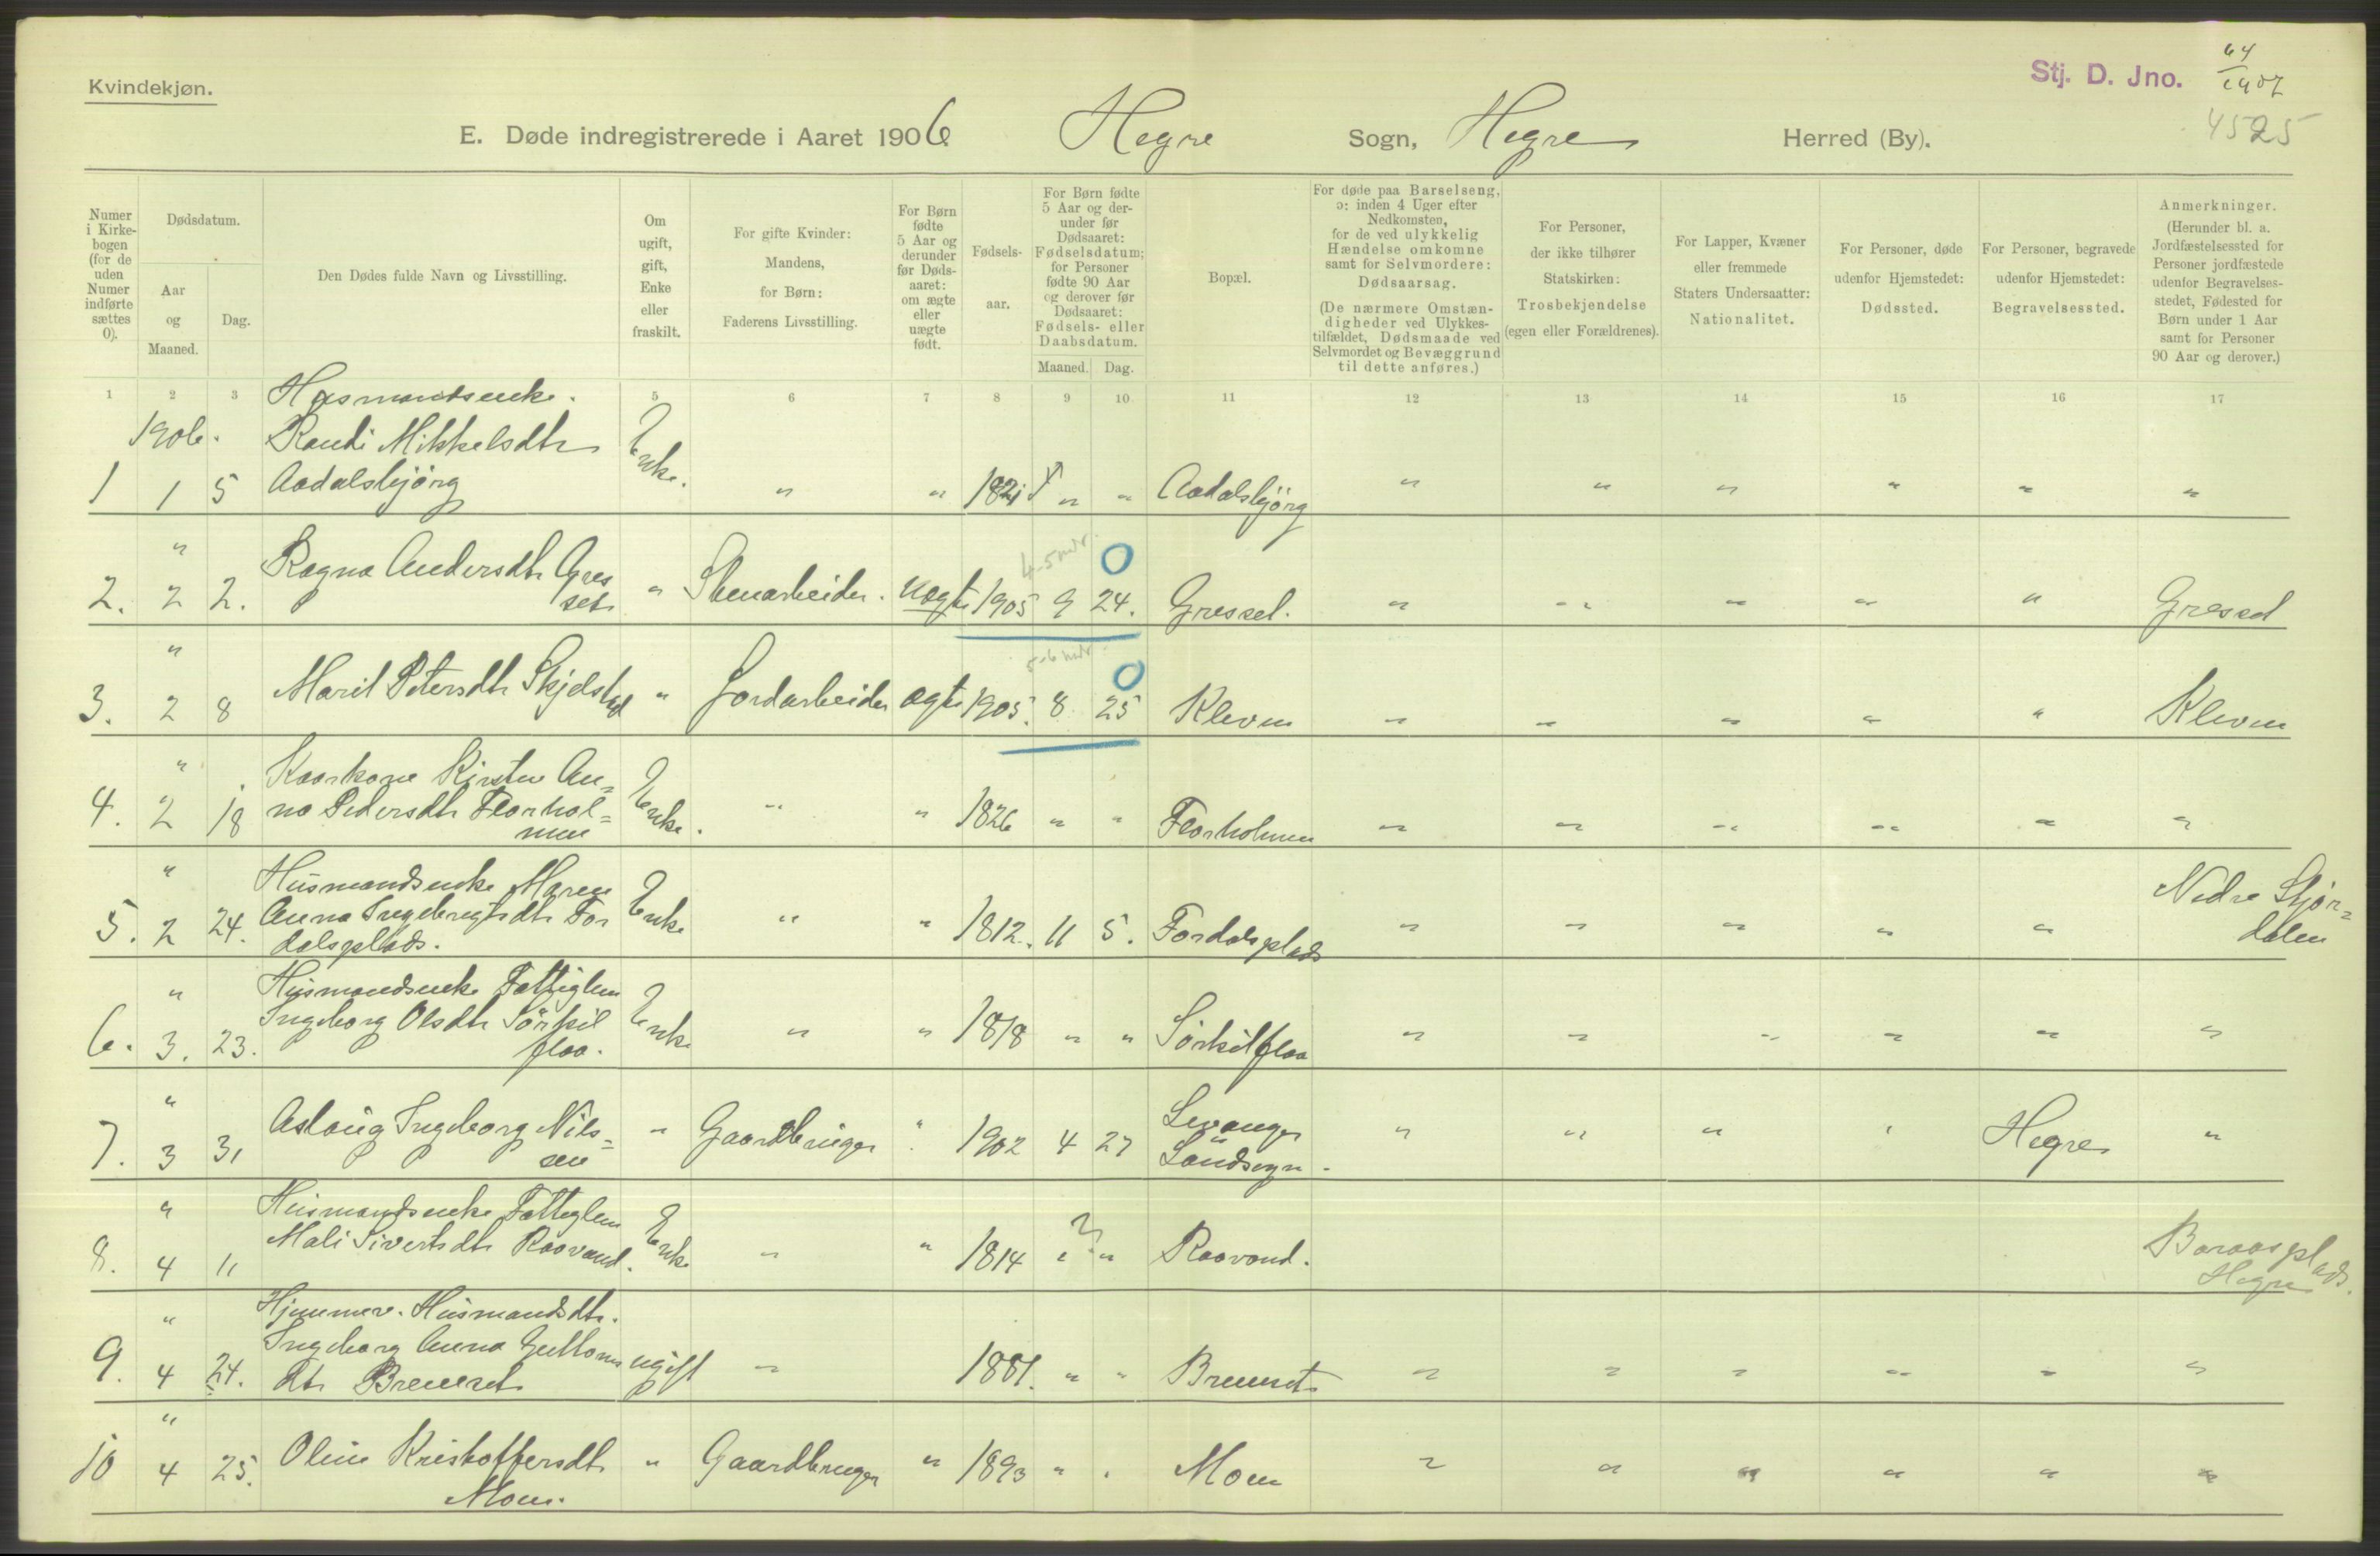 Kvindekjøn.
Stj. D. Jno. 64/1907
4525
E. Døde indregistrerede i Aaret 1906 Hegre Sogn, Hegre Herred (By).
Numer i Kirkebogen (for de uden Numer indførte sættes 0).
Dødsdatum.
Aar og Maaned.
Dag.
Den Dødes fulde Navn og Livsstilling.
Om ugift, gift, Enke eller fraskilt.
For gifte Kvinder: Mandens, for Børn: Faderens Livsstilling.
For Børn fødte 5 Aar og derunder før Dødsaaret: om ægte eller uægte født.
Fødselsaar.
For Børn fødte 5 Aar og derunder før Dødsaaret: Fødselsdatum; for Personer fødte 90 Aar og derover før Dødsaaret: Fødsels- eller Daabsdatum.
Maaned. Dag.
Bopæl.
For døde paa Barselseng, ɔ: inden 4 Uger efter Nedkomsten, for de ved ulykkelig Hændelse omkomne samt for Selvmordere: Dødsaarsag.
(De nærmere Omstændigheder ved Ulykkestilfældet, Dødsmaade ved Selvmordet og Bevæggrund til dette anføres.)
For Personer, der ikke tilhører Statskirken: Trosbekjendelse (egen eller Forældrenes).
For Lapper, Kvæner eller fremmede Staters Undersaatter: Nationalitet.
For Personer, døde udenfor Hjemstedet: Dødssted.
For Personer, begravede udenfor Hjemstedet: Begravelsessted.
Anmerkninger. (Herunder bl. a. Jordfæstelsessted for Personer jordfæstede udenfor Begravelsesstedet, Fødested for Børn under 1 Aar samt for Personer 90 Aar og derover.)
1 2 3 5 6 7 8 9 10 11 12 13 14 15 16 17
Husmandsenke.
1906. Randi Mikkelsdtr Enke.
1 1 5 Aadalsbjörg " " 1821 " " Aadalsbjörg " " " " " "
" 4-5 mdr. 0
2. 2 2. Ragna Andersdtr Gresset " Stenarbeider. uægte 1905 9 24. Gresset. " " " " " Gresset
" 5-6 mdr. 0
3. 2 8 Marit Petersdtr Skjelstad " Jordarbeider ægte 1905. 8 25 Kleven " " " " " Kleven
" Kaarkone Kirsten An=
4. 2 18 na Pedersdtr Florhol= Enke. " " 1826 " " Florholmen " " " " " "
men
" Husmandsenke Maren
5. 2 24. Anna Ingebrigtsdtr For Enke " " 1812. 11 5. Fordalsplads " " " " " Nedre Stjør=
dalsplads. dalen
" Husmandsenke Fattiglem
6. 3. 23. Ingeborg Olsdtr Sörkil Enke " " 1818 " " Sörkilflaa " " " " " "
flaa.
" Levanger
7. 3 31 Aslaug Ingeborg Nils= " Gaardbruger " 1902 4 27 Landsogn. " " " " Hegre "
sen
" Husmandsenke Fattiglem ?
8. 4 11 Mali Sivertsdtr Raavand. Enke " " 1814 " " Raavand. Baraasplads.
Hegre
" Hjemmev. Husmandsdtr.
9. 4 24. Ingeborg Anna ugift " 1881. " " Bremset " " " " " "
dtr Bremset
"
10 4 25. Oline Kristoffersdtr " Gaardbruger " 1893 " " Moen " " " " " "
Moen.